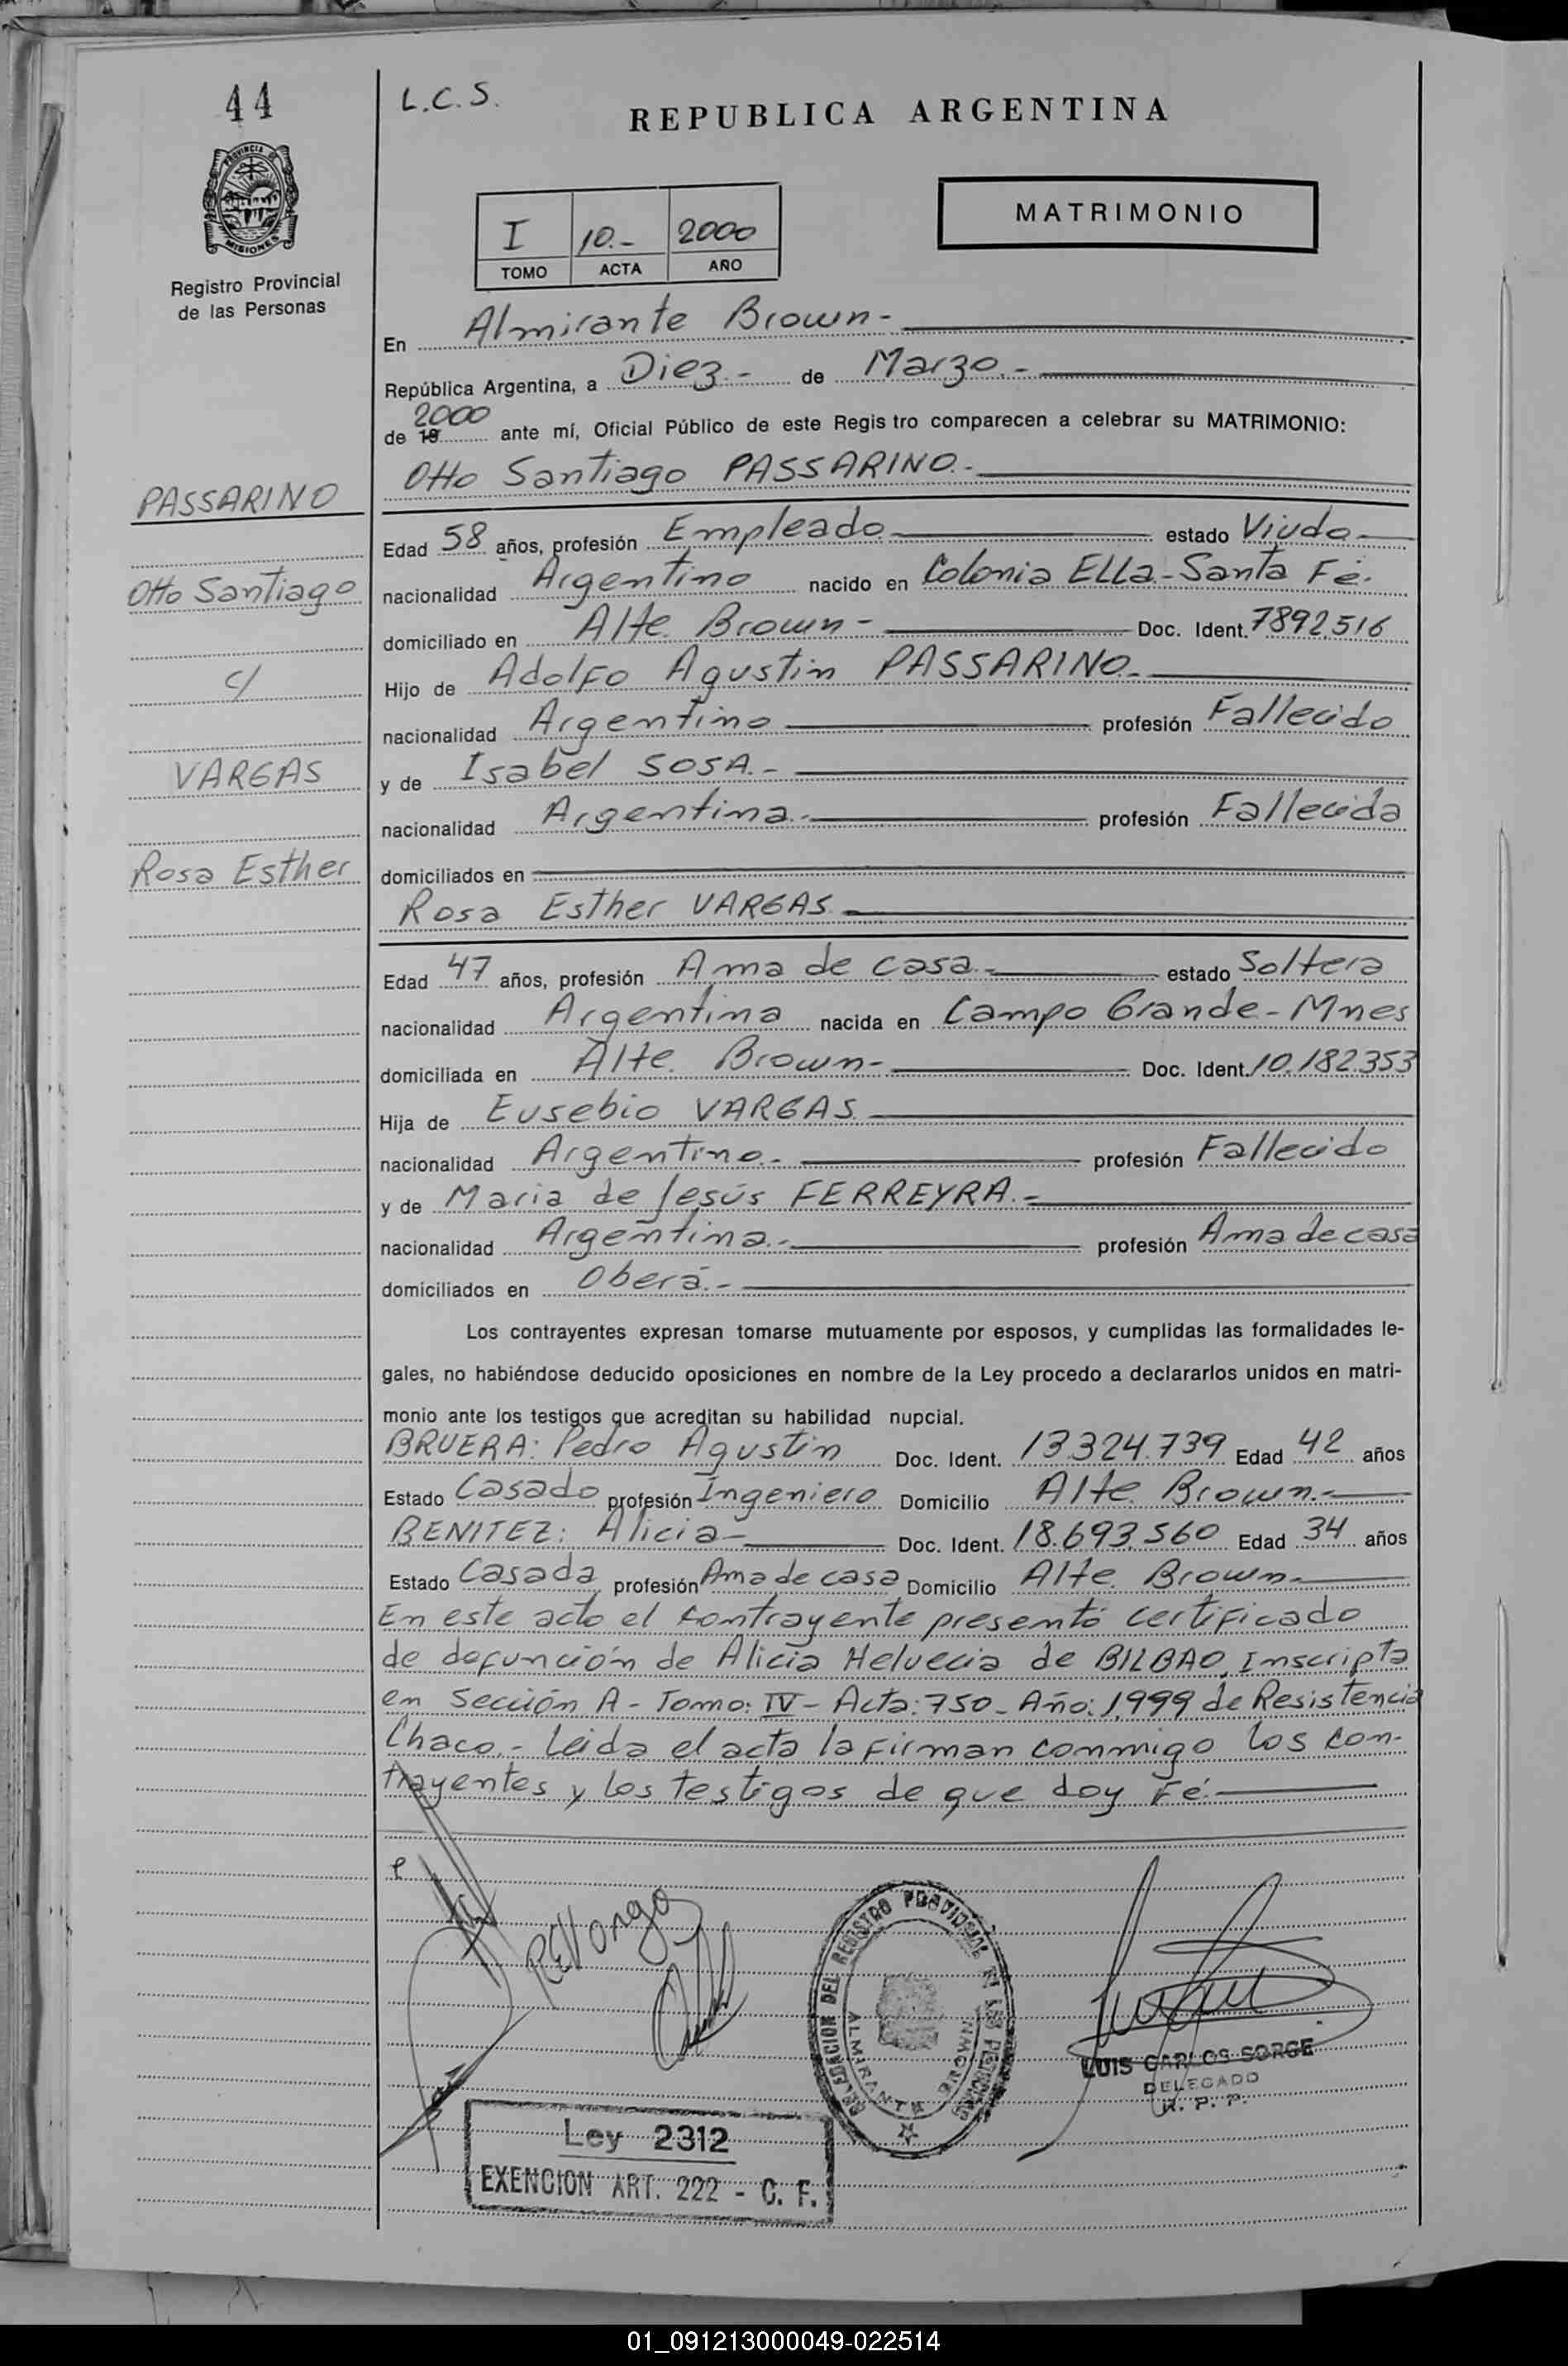 44
L.C.S.
REPUBLICA ARGENTINA
PROVINCIA DE
MISIONES
Registro Provincial
de las Personas
I 10.- 2000
TOMO ACTA AÑO
MATRIMONIO
En Almirante Brown-
República Argentina, a Diez.- de Marzo.-
2000
de 19 ante mí, Oficial Público de este Regis tro comparecen a celebrar su MATRIMONIO:
Otto Santiago PASSARINO.-
PASSARINO
Otto Santiago
c/
VARGAS
Rosa Esther
Edad 58 años, profesión Empleado estado Viudo
nacionalidad Argentino nacido en Colonia ELLa-Santa Fé.
domiciliado en Alte. Brown- Doc. Ident. 7892.516
Hijo de Adolfo Agustin PASSARINO.
nacionalidad Argentino profesión Fallecido
y de Isabel SOSA.-
nacionalidad Argentina.- profesión Fallecida
domiciliados en
Rosa Esther VARGAS
Edad 47 años, profesión Ama de casa.- estado Soltera
nacionalidad Argentina nacida en Campo Grande-Mnes
domiciliada en Alte. Brown- Doc. Ident. 10.182.353
Hija de Eusebio VARGAS
nacionalidad Argentino.- profesión Fallecido
y de Maria de Jesús FERREYRA.-
nacionalidad Argentina.- profesión Ama de casa
domiciliados en Oberá.-
Los contrayentes expresan tomarse mutuamente por esposos, y cumplidas las formalidades le-
gales, no habiéndose deducido oposiciones en nombre de la Ley procedo a declararlos unidos en matri-
monio ante los testigos que acreditan su habilidad nupcial.
BRUERA: Pedro Agustin Doc. Ident. 13.324.739 Edad 42 años
Estado Casado profesión Ingeniero Domicilio Alte. Brown.-
BENITEZ: Alicia- Doc. Ident. 18.693.560 Edad 34 años
Estado Casada profesión Ama de casa Domicilio Alte. Brown-
En este acto el contrayente presentó certificado
de defunción de Alicia Helvecia de BILBAO, Inscripta
en Sección A- Tomo: IV- Acta: 750- Año: 1.999 de Resistencia
Chaco.- Leida el acta la firman conmigo los con-
trayentes y los testigos de que doy Fé.
DELEGACION DEL REGISTRO PROVINCIAL DE LAS PERSONAS
ALMIRANTE BROWN
LUIS CARLOS SORGE
DELEGADO
R. P. P.
Ley 2312
EXENCION ART. 222 - C. F.
01_091213000049-022514